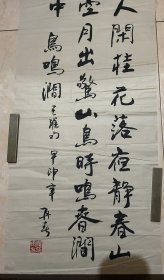 人閒桂花落夜静春山
空月出驚山鳥时鳴春澗
中 鳥鳴澗 王維 甲申年